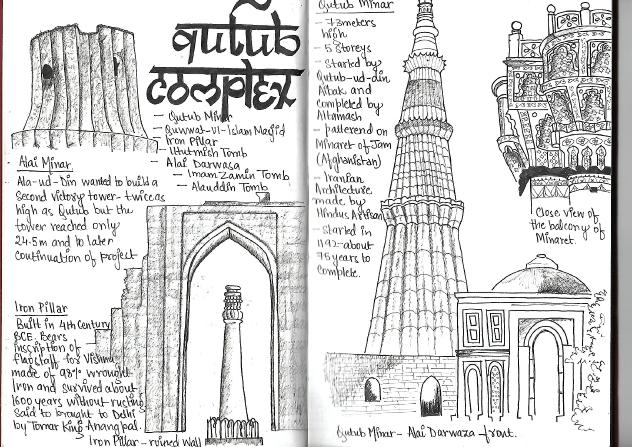 Qutub
Complex
- Qutub Minar
- Quwwat-Ul-Islam Masjid
Iron Pillar
- Iltutmish Tomb
- Alai Darwasa
- Imam Zamin Tomb
- Alauddin Tomb
Alai Minar
Ala-ud-Din wanted to build a
second victory tower - twice as
high as Qutub but the
tower reached only
24.5m and no later
continuation of project
Iron Pillar
Built in 4th Century
BCE. Bears
inscription of
flagstaff for Vishnu,
made of 98% wrought
Iron and survived about
1600 years without rusting
said to brought to Delhi
by Tomar King Anangpal.
Iron Pillar - ruined wall
Qutub Minar
- 73 meters
high
- 5 Storeys
- Started by
Qutub-ud-din
Aibak and
completed by
Altamash
- patterend on
Minaret of Jam
(Afghanistan)
- Iranian
Architecture
made by
Hindus Artisan
- Started in
1192 - about
75 years to
complete.
Close view of
the balcony of
Minaret.
Qutub Minar - Alai Darwaza - front.